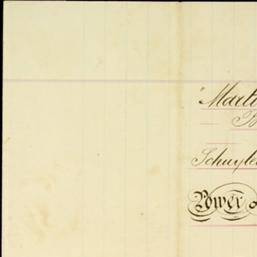 "Marti
Schuyle
Power o